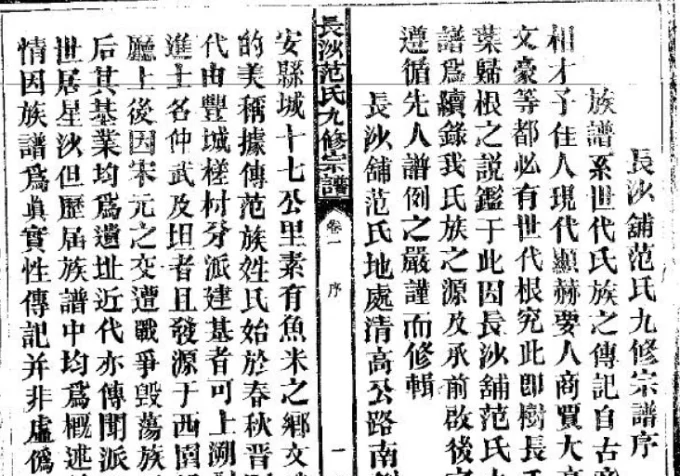 長沙舖范氏九修宗譜序
族譜系世代氏族之傳記自古
相才子佳人現代顯赫要人商賈大
文豪等都必有世代根究此即樹長
葉歸根之說鑑于此因長沙舖范氏
譜爲續錄我氏族之源及承前啟後
遵循先人譜例之嚴謹而修輯
長沙舖范氏地處清高公路南
長沙范氏九修宗譜
卷一
序
一
安縣城十七公里素有魚米之鄉
的美稱據傳范族姓氏始於春秋晋
代由豐城槎村分派建基者可上溯
進士名仲武及坦者且發源于西園
廳上後因宋元之交遭戰爭毀蕩族
后其基業均爲遺址近代亦傳聞派
世居星沙但歷届族譜中均爲概述
情因族譜爲眞實性傳記并非虛僞